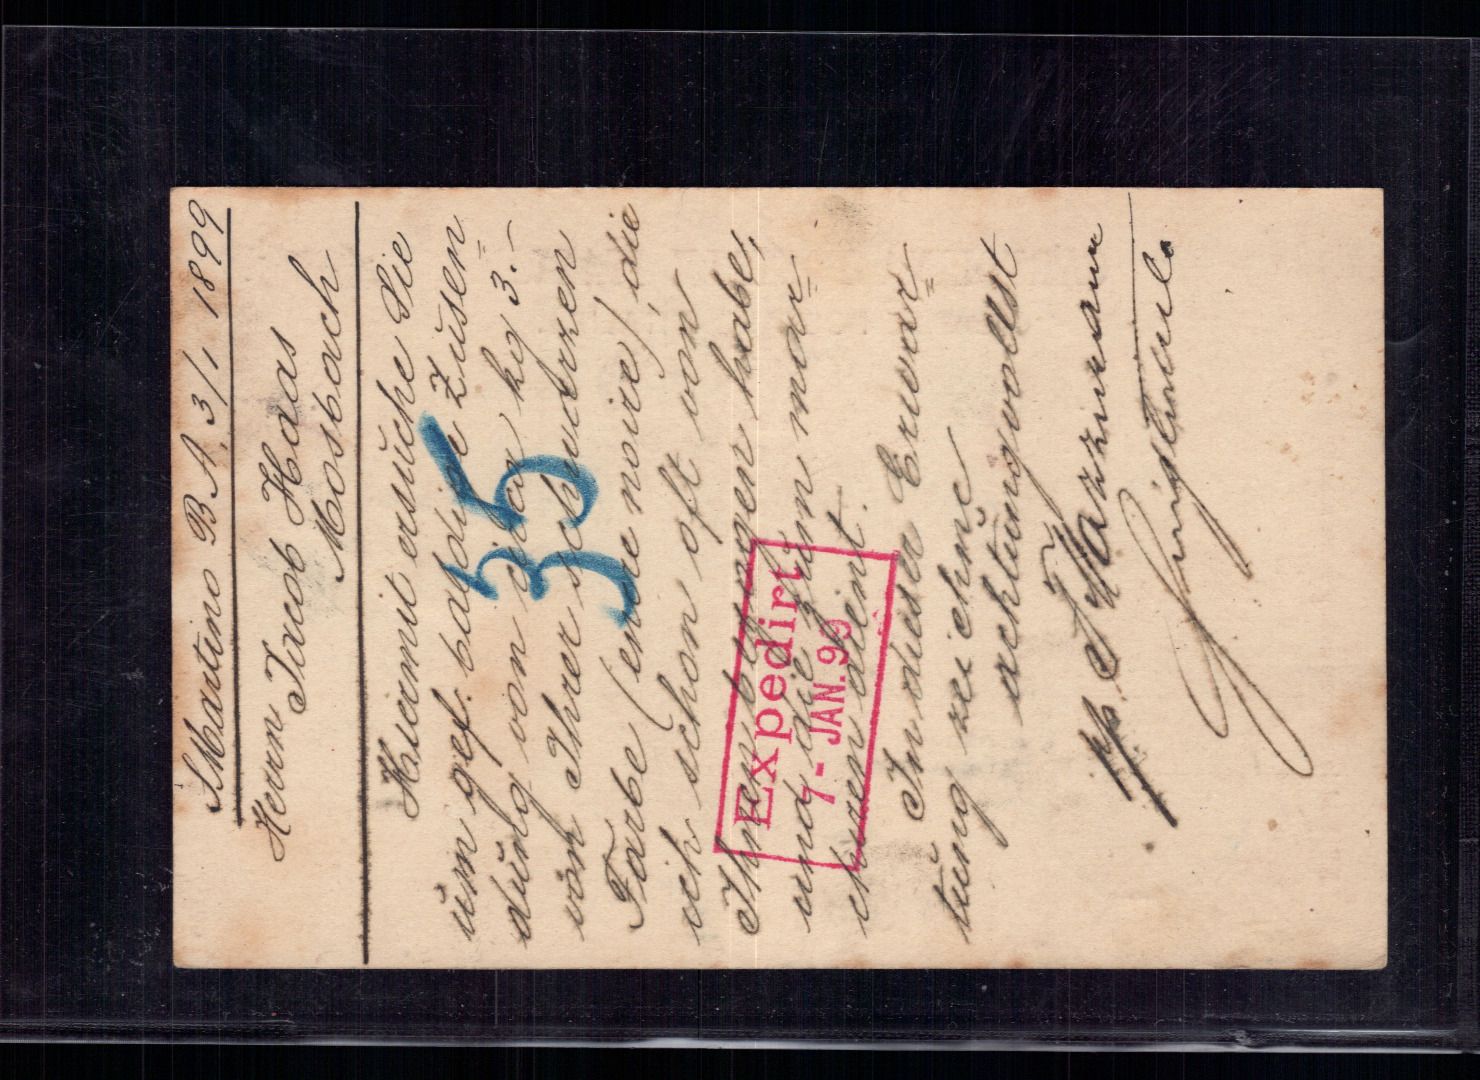 S. Martino B. A. 3/1. 1899
Herrn Jacob Haas
Mosbach
Hiermit ersuche Sie
um gef. baldige Zusen=
dung von circa kg 3.-
von Ihrer schwarzen
Farbe (encre noire), die
ich schon oft von
Ihnen bezogen habe,
und die zum mar=
chiren dient.
In dieser Erwar=
tung zeichne
achtungsvollst
pp.
35
Expedirt
7- JAN. 99